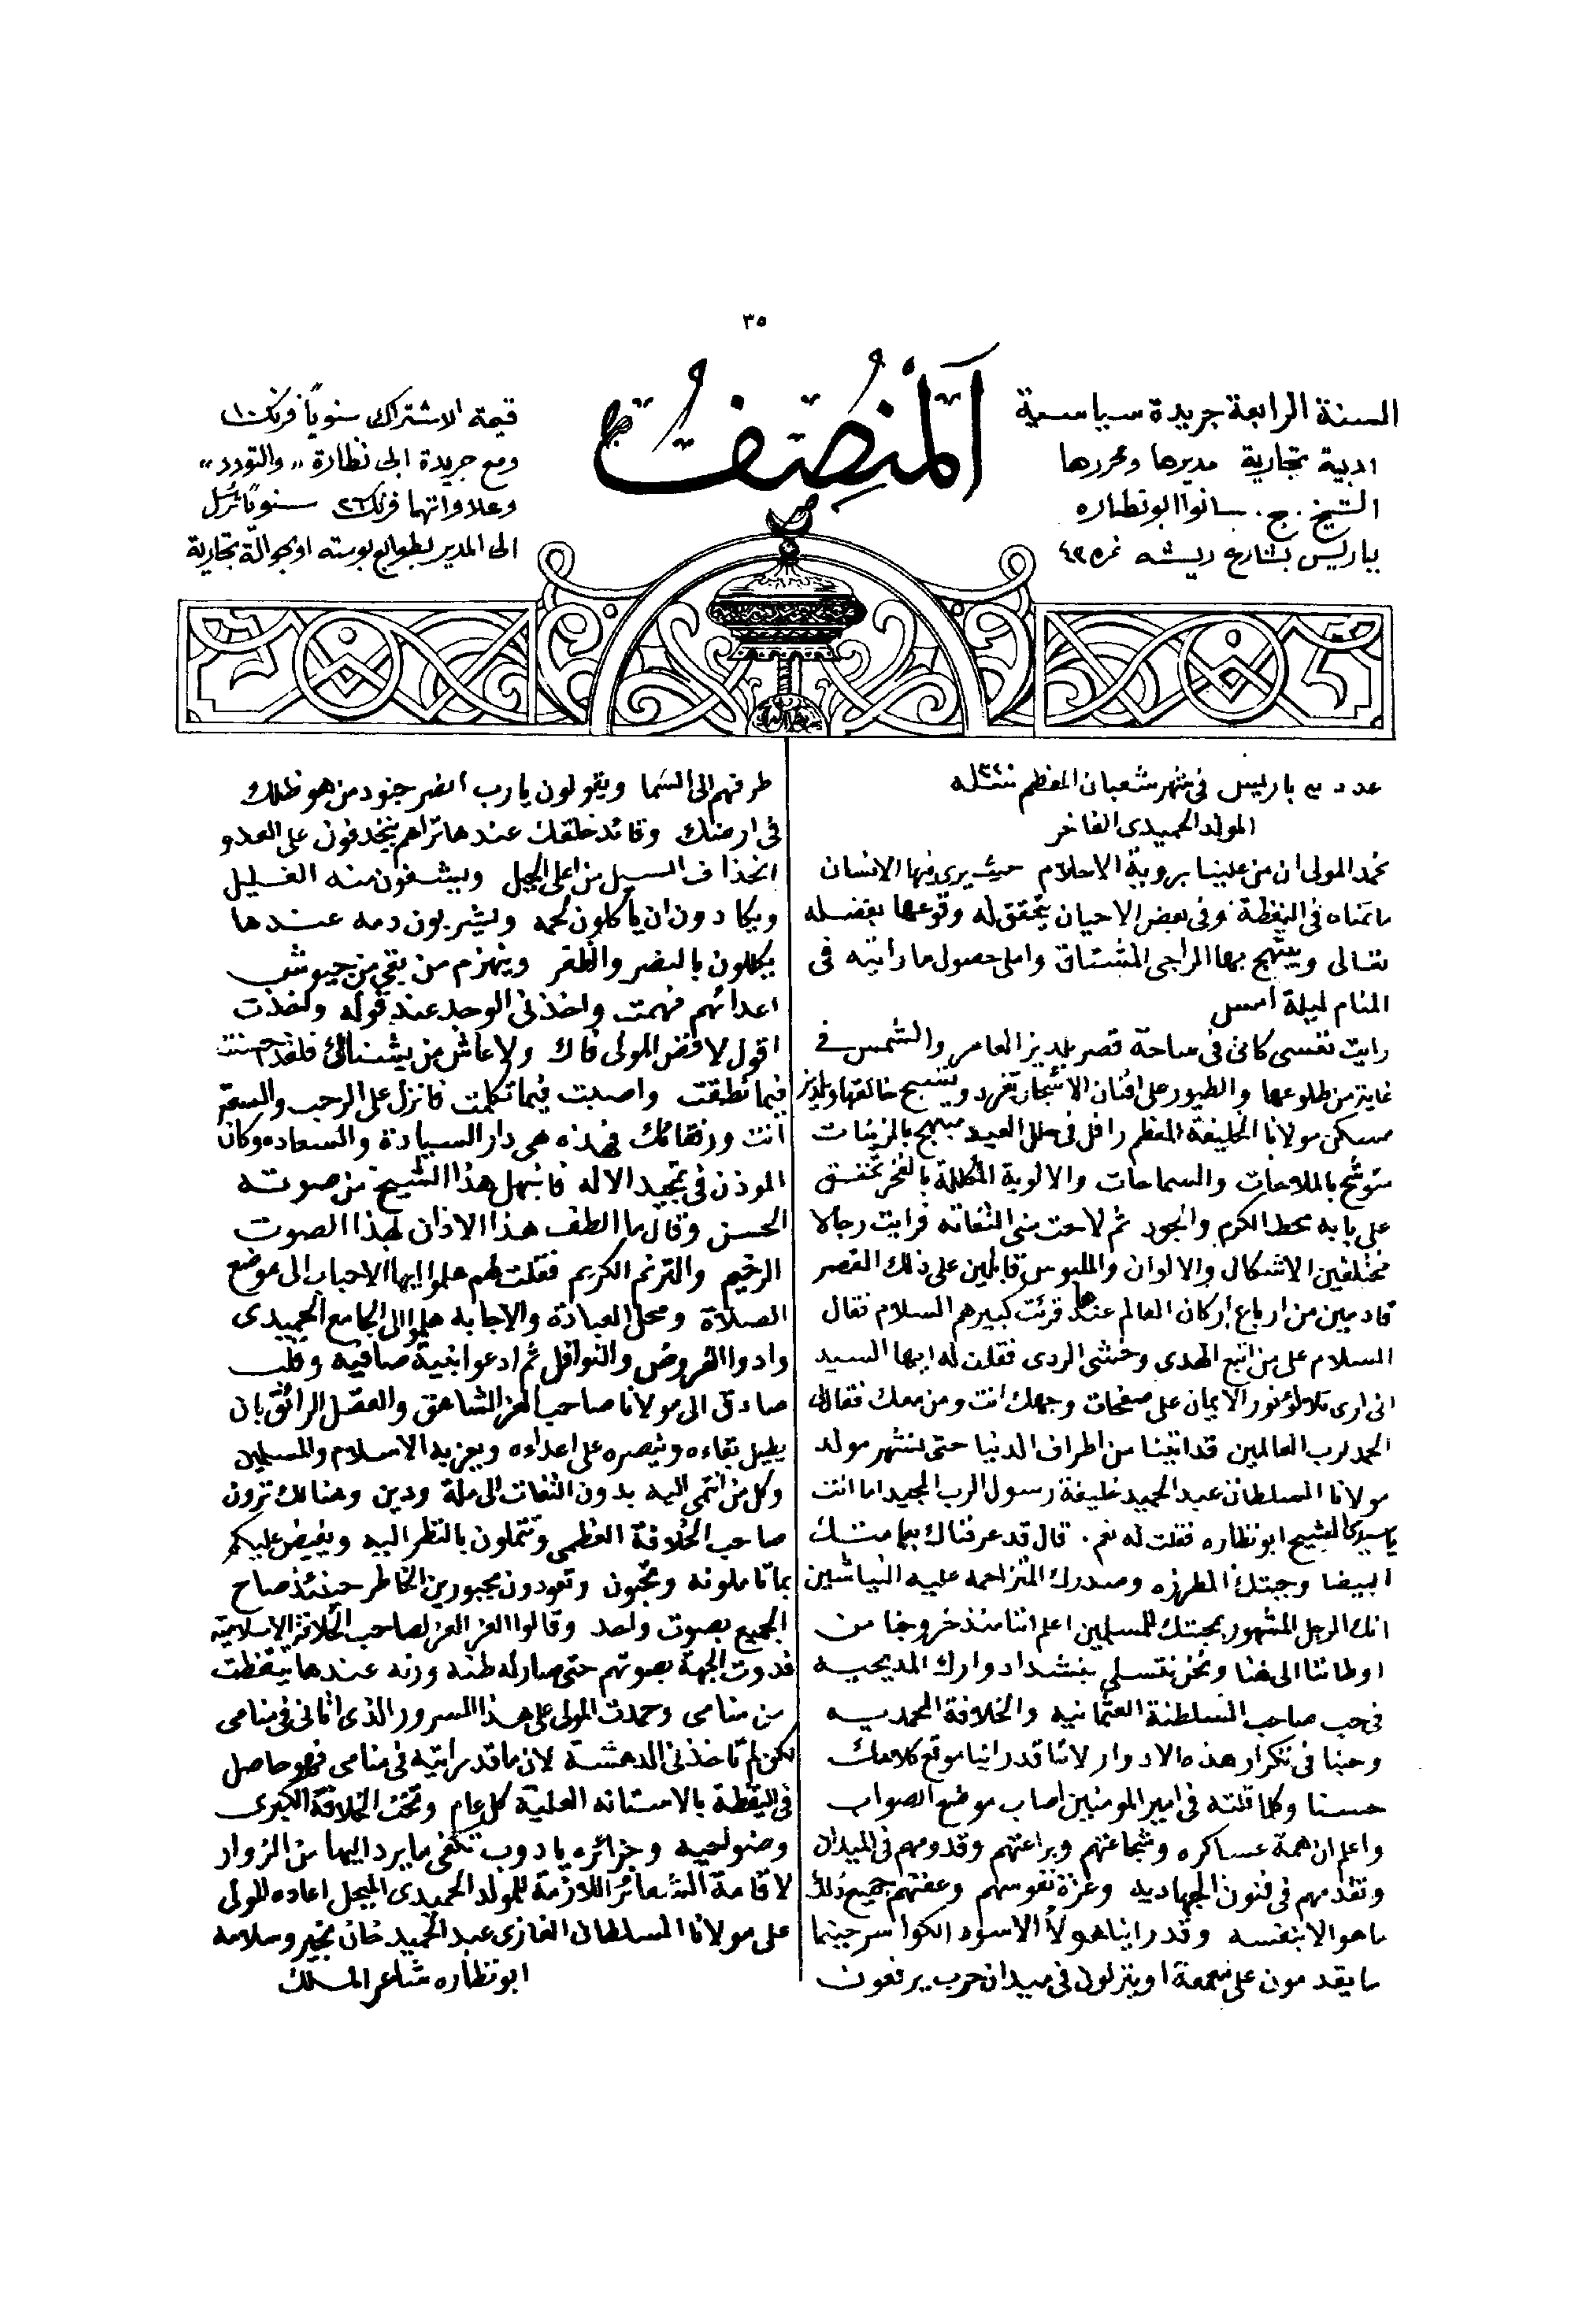 ٣٥
اَلْمُنصِفُ
السنة الرابعة جريدة سياسية
ادبية تجارية مديرها ومحررها
الشيخ . ج . سانوا ابو نظاره
بباريس بشارع ريشه نمره ٤٣
قيمة الاشتراك سنوياً فرنك ١٠
ومع جريدة ابى نظارة ,, والتودد ,,
وعلاواتهما فرنك ٢٦ سنوياً ترسل
الى المدير بطوابع بوسته او بحوالة تجارية
عدد باريس فى شهر شعبان المعظم سنة
المولد الحميدى الفاخر
نحمد المولى ان من علينا بروية الاحلام حيث يرى فيها الانسان
ما تمناه فى اليقظة وفى بعض الاحيان يتحقق له وقوعها بفضله
تعالى ويبتهج بها الراجى المشتاق واملى حصول ما رايته فى
المنام ليلة امس
رايت نفسى كانى فى ساحة قصر يلديز العامر والشمس فى
غاية من طلوعها والطيور على افنان الاشجار تغرد وتسبح خالقها ويلديز
مسكن مولانا الخليفة المعظم رافل فى حلل العيد مبتهج بالزينات
متوشح بالملاحات والسماحات والالوية المكللة بالفخر تخفق
على بابه محط الكرم والجود ثم لاحت منى التفاته فرايت رجالا
مختلفين الاشكال والالوان والملبوس قابلين على ذلك القصر
قادمين من ارباع اركان العالم عندها قرئت كبيرهم السلام فقال
السلام على من اتبع الهدى وخشى الردى فقلت له ايها السيد
انى ارى تلالؤ نور الايمان على صفحات وجهك انت ومن معك فقال لى
الحمد لرب العالمين قد اتينا من اطراف الدنيا حتى نشهر مولد
مولانا السلطان عبد الحميد خليفة رسول الرب المجيد اما انت
يا سيدى الشيخ ابو نظاره فقلت له نعم . قال قد عرفناك بعمامتك
البيضا وجبتك المطرزه وصدرك المتزاحمه عليه النياشين
انك الرجل المشهور بمحبتك للمسلمين اعلم اننا منذ خروجنا من
اوطاننا الى هنا ونحن نتسلى بنشد ادوارك المديحيه
فى حب صاحب السلطنة العثمانيه والخلافة المحمديه
وحبنا فى تكرار هذه الادوار لاننا قد راينا موقع كلامك
حسنا وكلما قلته فى امير المومنين اصاب موضع الصواب
واعلم ان همة عساكره وشجاعتهم وبراعتهم وقدومهم فى الميدان
وتقدمهم فى فنون الجهاديه وعزة نفوسهم وعفتهم جميع ذلك
ما هو الا بنفسه وقد راينا هولاء الاسود الكواسر حينما
ما يقدمون على معمعة او ينزلون فى ميدان حرب يرفعون
طرفهم الى السما ويقولون يارب انصر جنود من هو ظلك
فى ارضك وقائد خلقك عندها تراهم ينخدفون على العدو
انخذاف السيل من اعلى الجبل ويشفون منه الغليل
ويكادون ان ياكلون لحمه ويشربون دمه عندها
يكللون بالنصر والظفر وينهزم من بقى من جيوش
اعدائهم فهمت واخذنى الوجد عند قوله واخذت
اقول لا فض المولى فاك ولا عاش من يشناك فلقد احسنت
فيما نطقت واصبت فيما تكلمت فانزل على الرحب والسعة
انت ورفقائك فهذه هى دار السيادة والسعاده وكان
الموذن فى تمجيد الاله فانبهل هذا الشيخ من صوته
الحسن وقال ما الطف هذا الاذان بهذا الصوت
الرخيم والترنم الكريم فقلت لهم هلموا ايها الاحباب الى موضع
الصلاة ومحل العبادة والاجابة هلموا الى الجامع الحميدى
وادوا الفروض والنوافل ثم ادعوا بنية صافيه وقلب
صادق الى مولانا صاحب العز الشاهق والعقل الرائق بان
يطيل بقاءه وينصره على اعداءه ويعز به الاسلام والمسلمين
وكل من انتمى اليه بدون التفات الى ملة ودين وهنالك ترون
صاحب الخلافة العظمى وتتملون بالنظر اليه ويفيض عليكم
بما تاملونه وتحبون وتعودون مجبورين الخاطر حينئذ صاح
الجميع بصوت واحد وقالوا العز العز لصاحب الخلافة الاسلامية
فدوت الجهة بصوتهم حتى صار له طنه ورنه عندها تيقظت
من منامى وحمدت المولى على هذا السرور الذى اتانى فى منامى
لكن لم تاخذنى الدهشة لان ما قد رايته فى منامى فهو حاصل
فى اليقظة بالاستانه العلية كل عام وتخت الخلافة الكبرى
وضواحيه وجزائره يادوب تكفى ما يرد اليها من الزوار
لاقامة الشعائر اللازمة للمولد الحميدى المبجل اعاده المولى
على مولانا السلطان الغازى عبد الحميد خان بخير وسلامه
ابو نظاره شاعر الملك